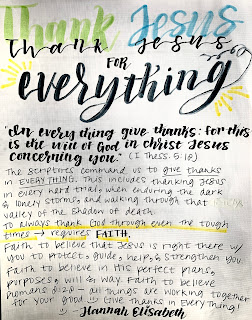 Thank Jesus
Thank Jesus
FOR
everything
"In every thing give thanks: for this
is the will of God in Christ Jesus
concerning you." (I Thess. 5:18)
The Scriptures command us to give thanks
in EVERYTHING. This includes thanking Jesus
in every hard trial, when enduring the dark
& lonely storms, and walking through that
valley of the shadow of death.
To always thank God through even the tough
times → requires FAITH.
Faith to believe that Jesus is right there w/
you to protect, guide, help, & strengthen you
Faith to believe in His perfect plans,
purposes, will & way. Faith to believe
Romans 8:28 - all things are working together
for your good. Give Thanks in Everything!
- Hannah Elisabeth